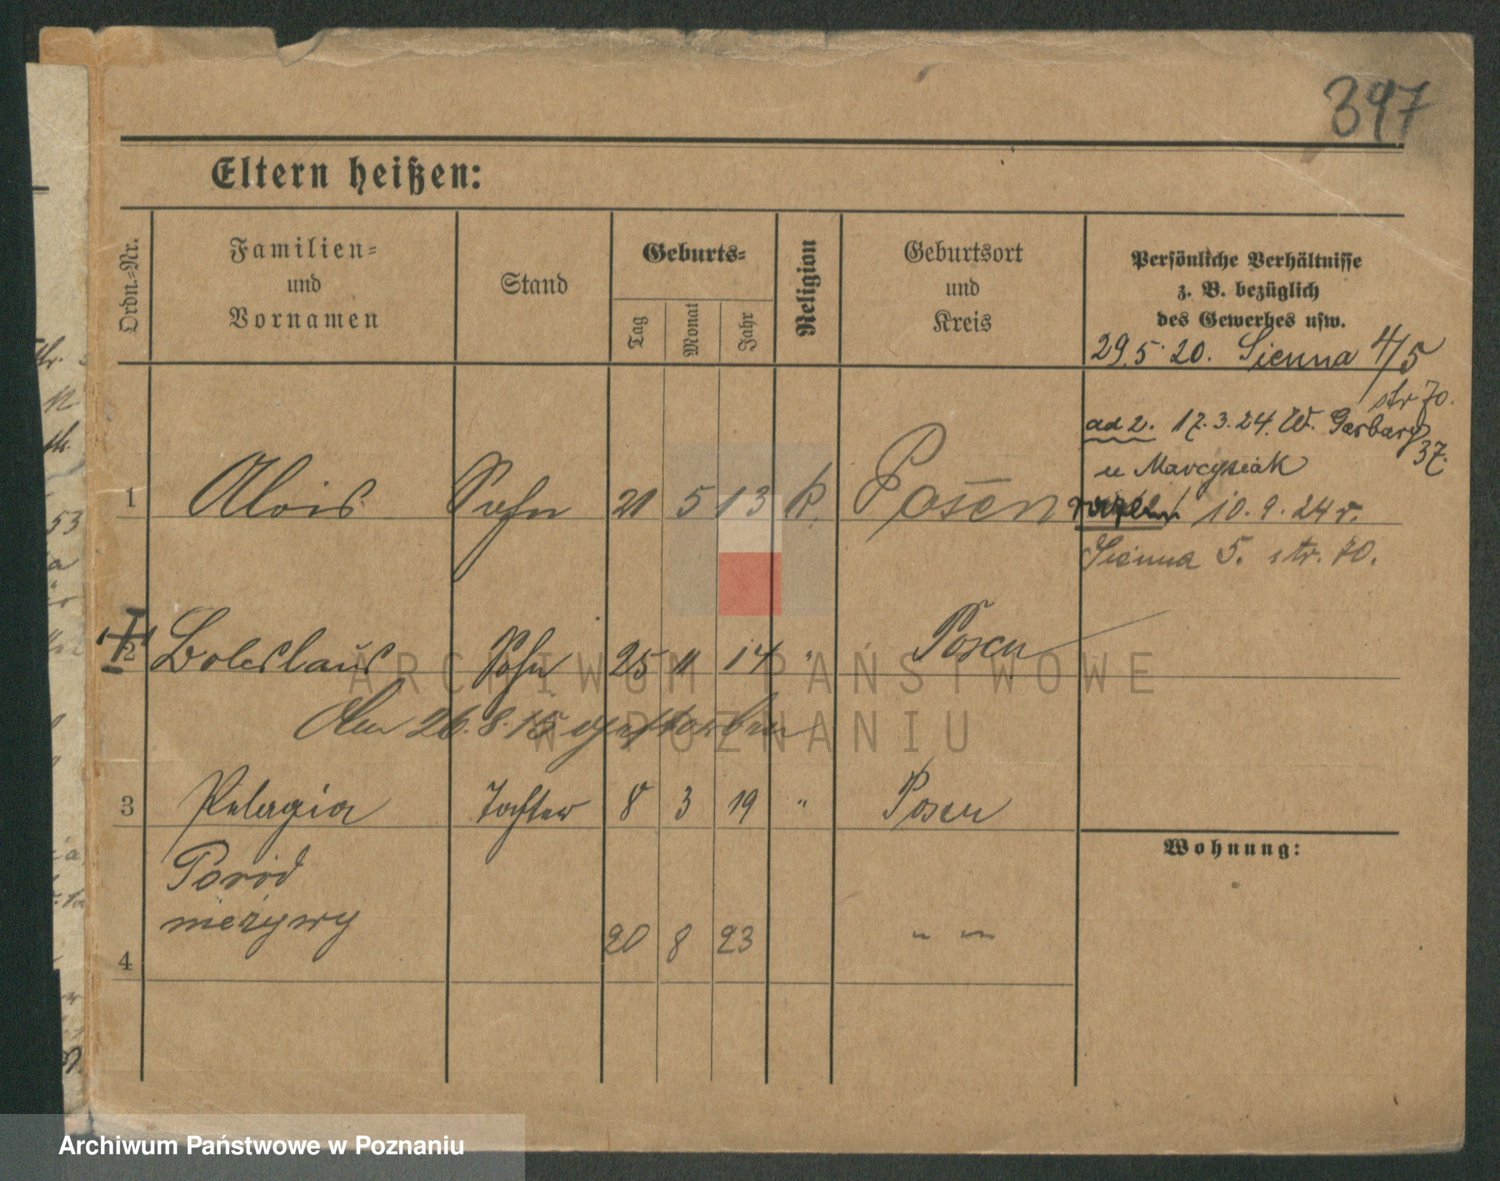 397
Eltern heißen:
Ordn.-Nr.
Familien-
und
Vornamen
Stand
Geburts-
Tag
Monat
Jahr
Religion
Geburtsort
und
Kreis
Persönliche Verhältnisse
z. B. bezüglich
des Gewerbes usw.
29.5.20. Sienna 4/5
str 70.
ad 2. 17.3.24. W. Garbary
37.
u Marcysiak
10.9.24 r.
Sienna 5. str. 70.
1 Alois Sohn 21 5 13 k. Posen
2 Boleslaus Sohn 25 11 14 " Posen
Am 26.8.15 gestorben
3 Pelagia Tochter 8 3 19 " Posen
Poród
nieżywy
4 20 8 23 " "
Wohnung:
ARCHIWUM PAŃSTWOWE
W POZNANIU
Archiwum Państwowe w Poznaniu